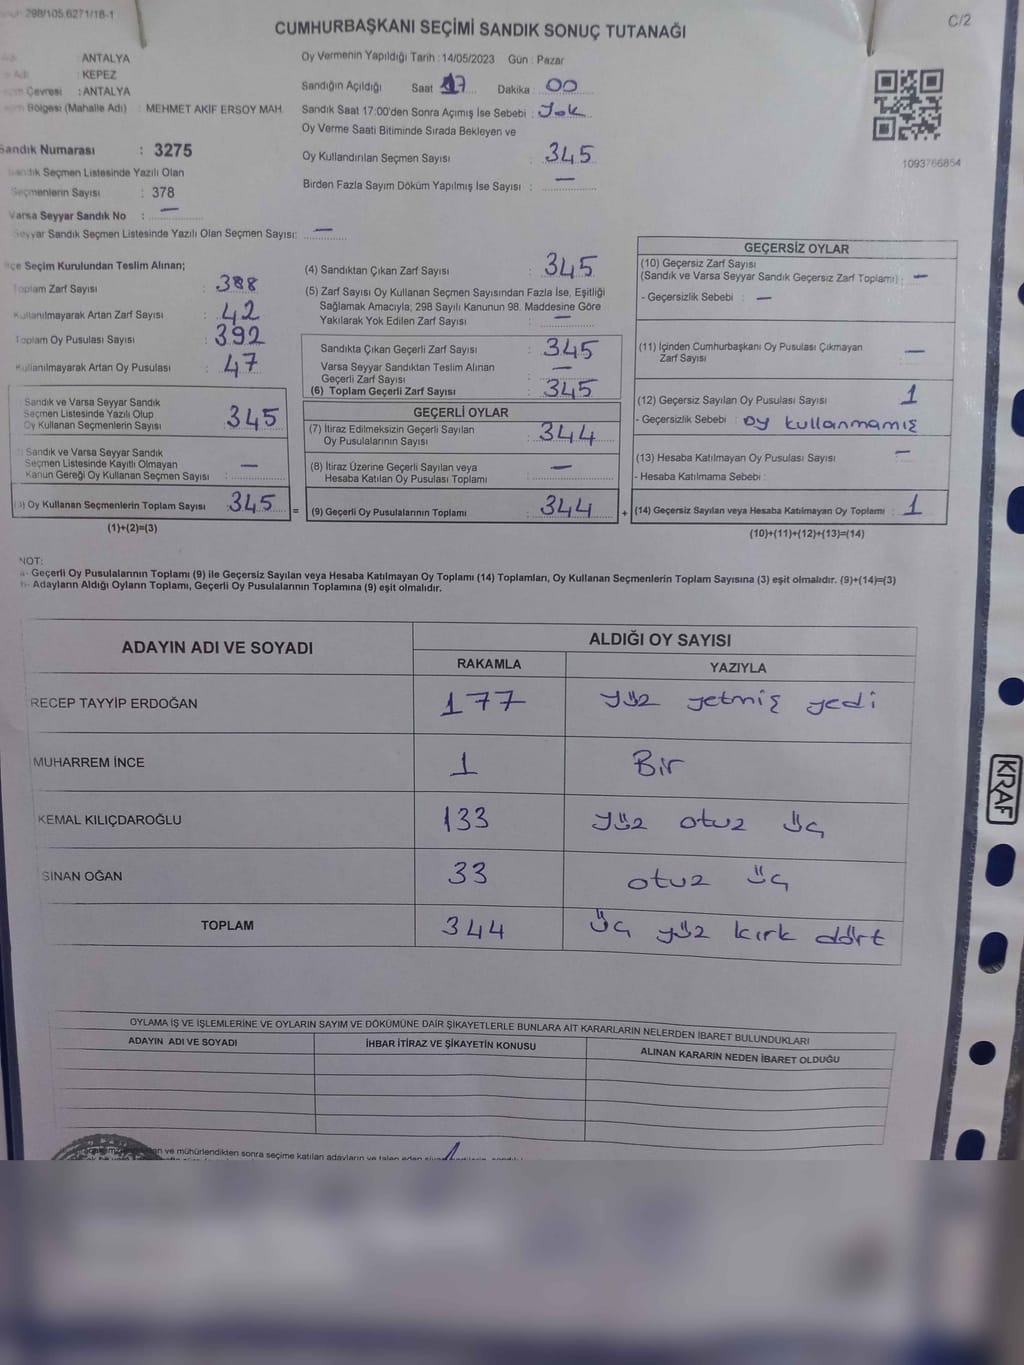 298/105.6271/18-1
C/2
CUMHURBAŞKANI SEÇİMİ SANDIK SONUÇ TUTANAĞI
: ANTALYA
Adı : KEPEZ
Çevresi : ANTALYA
Bölgesi (Mahalle Adı) : MEHMET AKİF ERSOY MAH.
Sandık Numarası : 3275
Sandık Seçmen Listesinde Yazılı Olan
Seçmenlerin Sayısı : 378
Varsa Seyyar Sandık No : —
Seyyar Sandık Seçmen Listesinde Yazılı Olan Seçmen Sayısı: —
Oy Vermenin Yapıldığı Tarih : 14/05/2023 Gün : Pazar
Sandığın Açıldığı Saat 17 Dakika 00
Sandık Saat 17:00'den Sonra Açımış İse Sebebi : Yok
Oy Verme Saati Bitiminde Sırada Bekleyen ve
Oy Kullandırılan Seçmen Sayısı : 345
Birden Fazla Sayım Döküm Yapılmış İse Sayısı : —
1093766854
İlçe Seçim Kurulundan Teslim Alınan;
Toplam Zarf Sayısı : 388
Kullanılmayarak Artan Zarf Sayısı : 42
Toplam Oy Pusulası Sayısı : 392
Kullanılmayarak Artan Oy Pusulası : 47
Sandık ve Varsa Seyyar Sandık
Seçmen Listesinde Yazılı Olup
Oy Kullanan Seçmenlerin Sayısı : 345
Sandık ve Varsa Seyyar Sandık
Seçmen Listesinde Kayıtlı Olmayan
Kanun Gereği Oy Kullanan Seçmen Sayısı : —
(3) Oy Kullanan Seçmenlerin Toplam Sayısı : 345 =
(1)+(2)=(3)
(4) Sandıktan Çıkan Zarf Sayısı : 345
(5) Zarf Sayısı Oy Kullanan Seçmen Sayısından Fazla İse, Eşitliği
Sağlamak Amacıyla; 298 Sayılı Kanunun 98. Maddesine Göre
Yakılarak Yok Edilen Zarf Sayısı : —
Sandıkta Çıkan Geçerli Zarf Sayısı : 345
Varsa Seyyar Sandıktan Teslim Alınan
Geçerli Zarf Sayısı : —
(6) Toplam Geçerli Zarf Sayısı : 345
GEÇERLİ OYLAR
(7) İtiraz Edilmeksizin Geçerli Sayılan
Oy Pusulalarının Sayısı : 344
(8) İtiraz Üzerine Geçerli Sayılan veya
Hesaba Katılan Oy Pusulası Toplamı : —
(9) Geçerli Oy Pusulalarının Toplamı : 344 +
GEÇERSİZ OYLAR
(10) Geçersiz Zarf Sayısı
(Sandık ve Varsa Seyyar Sandık Geçersiz Zarf Toplamı) : —
- Geçersizlik Sebebi : —
(11) İçinden Cumhurbaşkanı Oy Pusulası Çıkmayan
Zarf Sayısı —
(12) Geçersiz Sayılan Oy Pusulası Sayısı 1
- Geçersizlik Sebebi : oy kullanmamış
(13) Hesaba Katılmayan Oy Pusulası Sayısı —
- Hesaba Katılmama Sebebi :
(14) Geçersiz Sayılan veya Hesaba Katılmayan Oy Toplamı : 1
(10)+(11)+(12)+(13)=(14)
NOT:
a- Geçerli Oy Pusulalarının Toplamı (9) ile Geçersiz Sayılan veya Hesaba Katılmayan Oy Toplamı (14) Toplamları, Oy Kullanan Seçmenlerin Toplam Sayısına (3) eşit olmalıdır. (9)+(14)=(3)
b- Adayların Aldığı Oyların Toplamı, Geçerli Oy Pusulalarının Toplamına (9) eşit olmalıdır.
ADAYIN ADI VE SOYADI ALDIĞI OY SAYISI
RAKAMLA YAZIYLA
RECEP TAYYİP ERDOĞAN 177 yüz yetmiş yedi
MUHARREM İNCE 1 Bir
KEMAL KILIÇDAROĞLU 133 yüz otuz üç
SİNAN OĞAN 33 otuz üç
TOPLAM 344 üç yüz kırk dört
OYLAMA İŞ VE İŞLEMLERİNE VE OYLARIN SAYIM VE DÖKÜMÜNE DAİR ŞİKAYETLERLE BUNLARA AİT KARARLARIN NELERDEN İBARET BULUNDUKLARI
ADAYIN ADI VE SOYADI İHBAR İTİRAZ VE ŞİKAYETİN KONUSU ALINAN KARARIN NEDEN İBARET OLDUĞU
ve mühürlendikten sonra seçime katılan adayların ve talep eden
KRAF